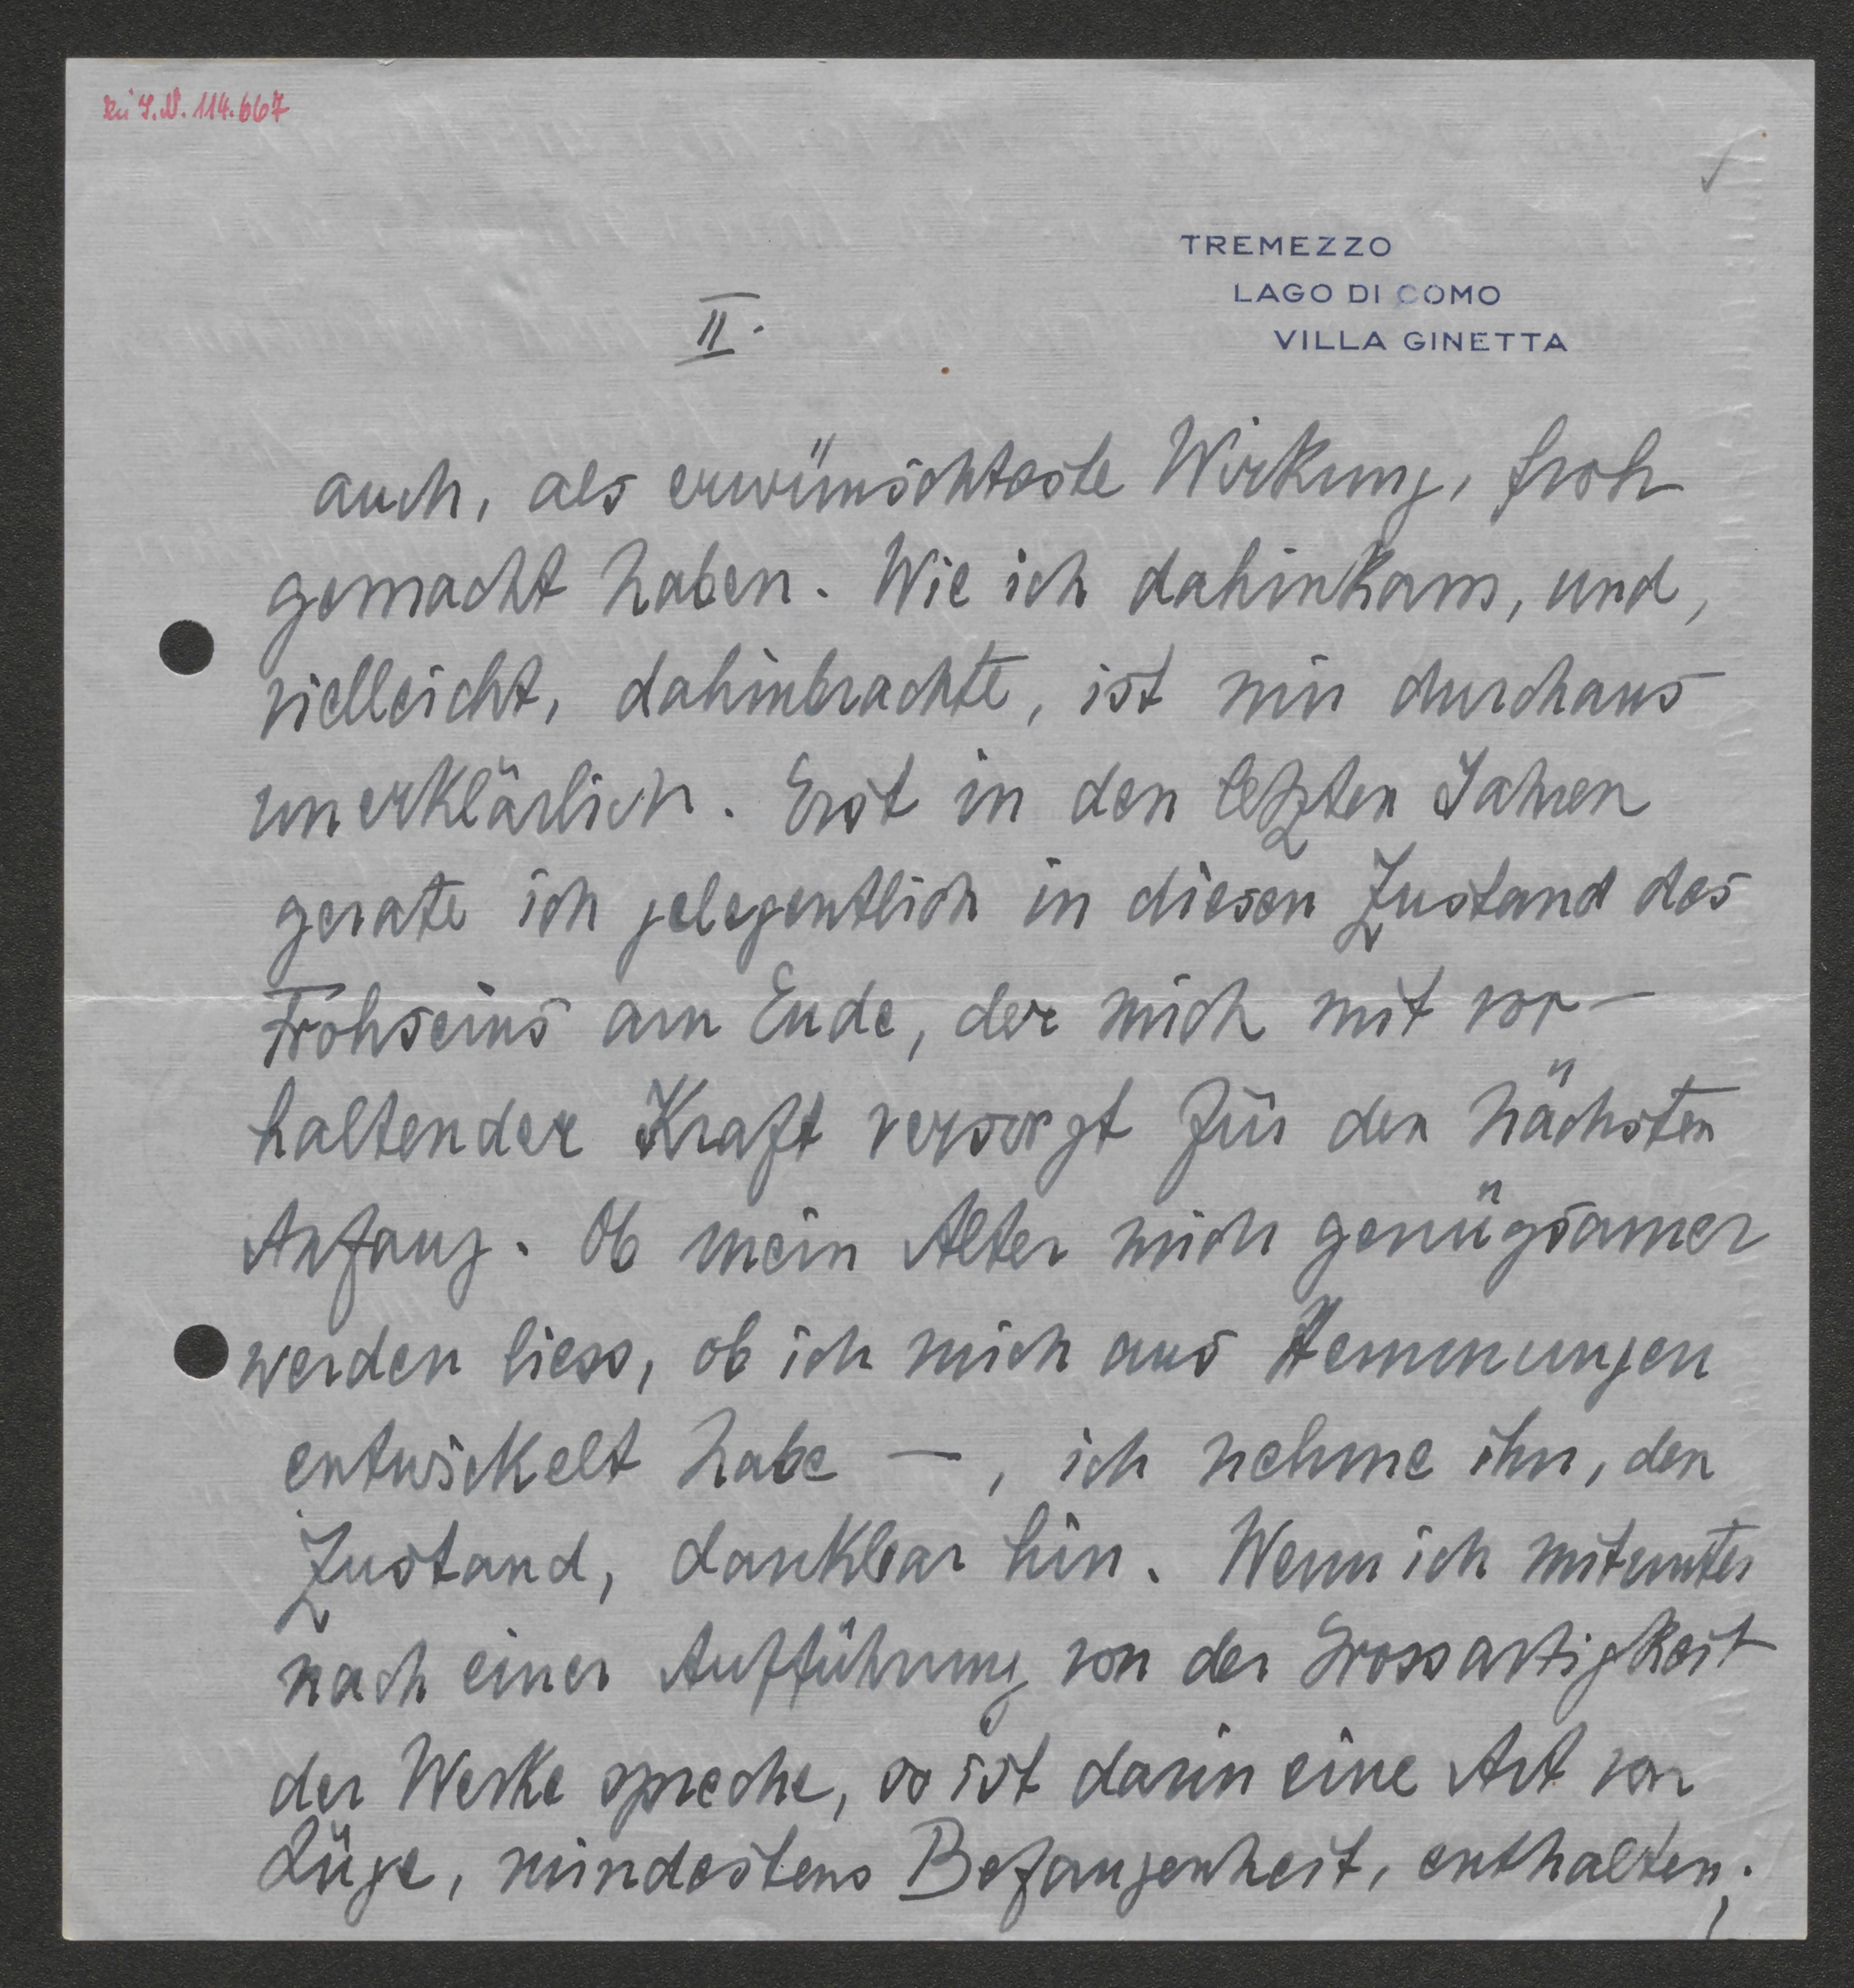 zu I.N. 114.667
TREMEZZO
LAGO DI COMO
VILLA GINETTA
II.
auch, als erwünschteste Wirkung, froh
gemacht haben. Wie ich dahinkam, und,
vielleicht, dahinbrachte, ist mir durchaus
unerklärlich. Erst in den letzten Jahren
gerate ich gelegentlich in diesen Zustand des
Frohseins am Ende, der mich mit vor-
haltender Kraft versorgt für den nächsten
Anfang. Ob mein Alter mich genügsamer
werden liess, ob ich mich aus Hemmungen
entwickelt habe —, ich nehme ihn, den
Zustand, dankbar hin. Wenn ich mitunter
nach einer Aufführung von der Grossartigkeit
der Werke spreche, so ist darin eine Art von
Lüge, mindestens Befangenheit, enthalten;